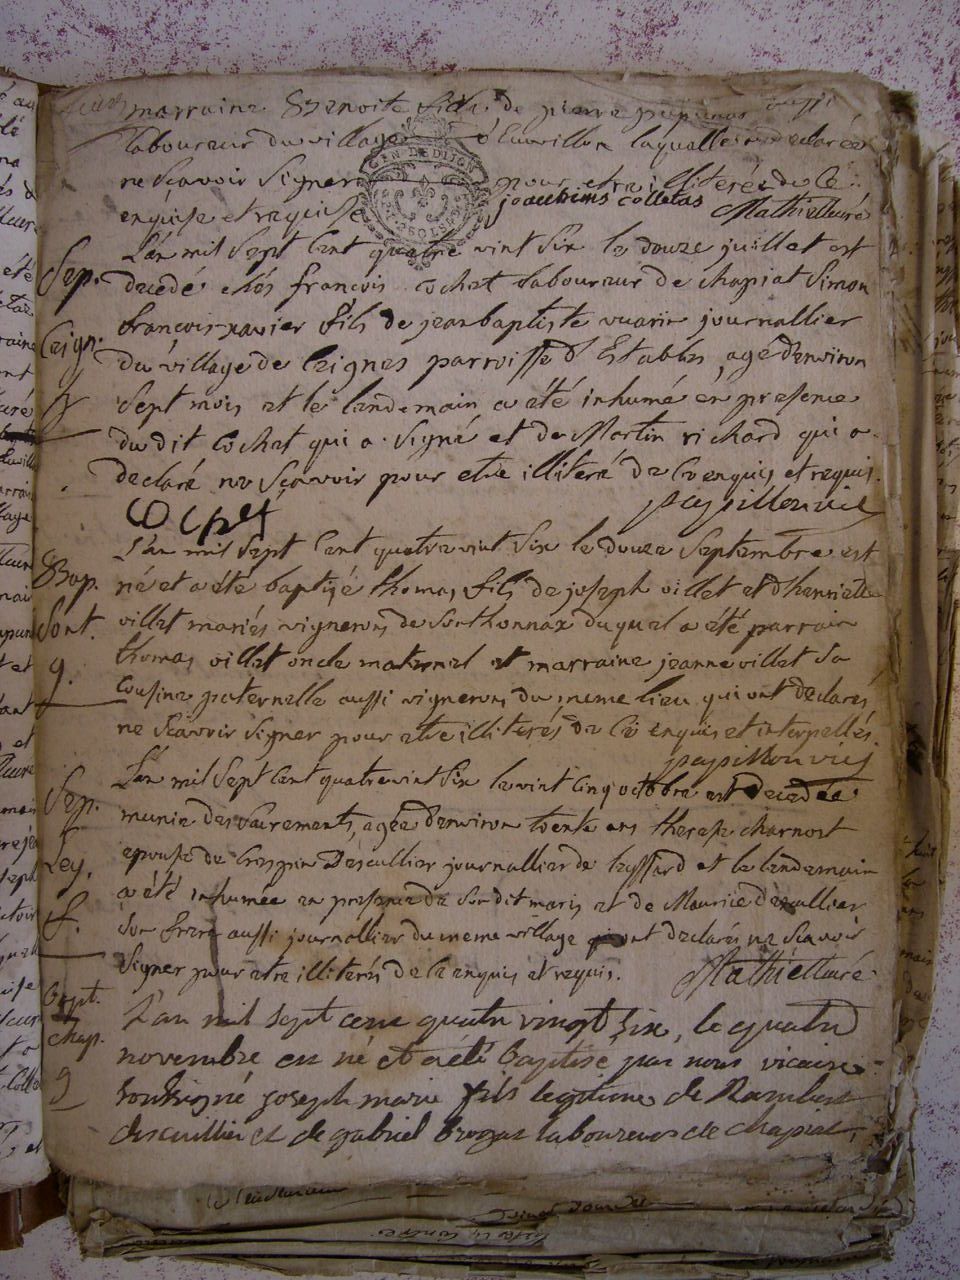 marraine Benoite fille de pierre
laboureur du village d' laqualle a declaré
ne Scavoir Signer pour etre illiterée de ce
enquise et requise joachims colletas Mathieu curé
GEN. DE DIJON
Sep. L'an mil Sept Cent quatre vint Six le douze juillet est
decedé chés françois cochet laboureur de chapiat Simon
Ceign. françois xavier fils de jean baptiste vuarin journallier
du village de Ceignes parroisse d'Etables, agé d'environ
g Sept mois et le landemain a été inhumé en presence
du dit Cochet qui a Signé et de Martin richard qui a
declaré ne Scavoir pour etre illiteré de ce enquis et requis.
papillon vic
Cochet
L'an mil Sept Cent quatre vint Six le douze Septembre est
Bap. né et a été baptizé thomas fils de joseph villet et d'henriette
Sont. villet mariés vignerons de Sonthonnax duquel a été parrain
g. thomas villet oncle maternel et marraine jeanne villet Sa
Cousine paternelle aussi vignerons du meme lieu qui ont declarés
ne Scavoir Signer pour etre illiterés de ce enquis et interpellés
papillon vic
L'an mil Sept Cent quatre vint Six le vint Cinq octobre est decedée
Sep. munie des Sacrements, agée d'environ trente ans therese charnost
Ley. epouse de Crespin Descullier journallier de leyssard et le landemain
f. a été inhumée en presence de Son dit maris et de Maurice descullier
Son frere aussi journallier du meme village qui ont declarés ne Scavoir
Signer pour etre illiterés de ce enquis et requis. Mathieu curé
Bapt. L'an mil sept cent quatre vingt six, le quatre
Chap. novembre est né et a été baptisé par nous vicaire
g soussigné joseph marie fils legitime de Rambert
descuillier et de gabriel laboureurs de chapiat,